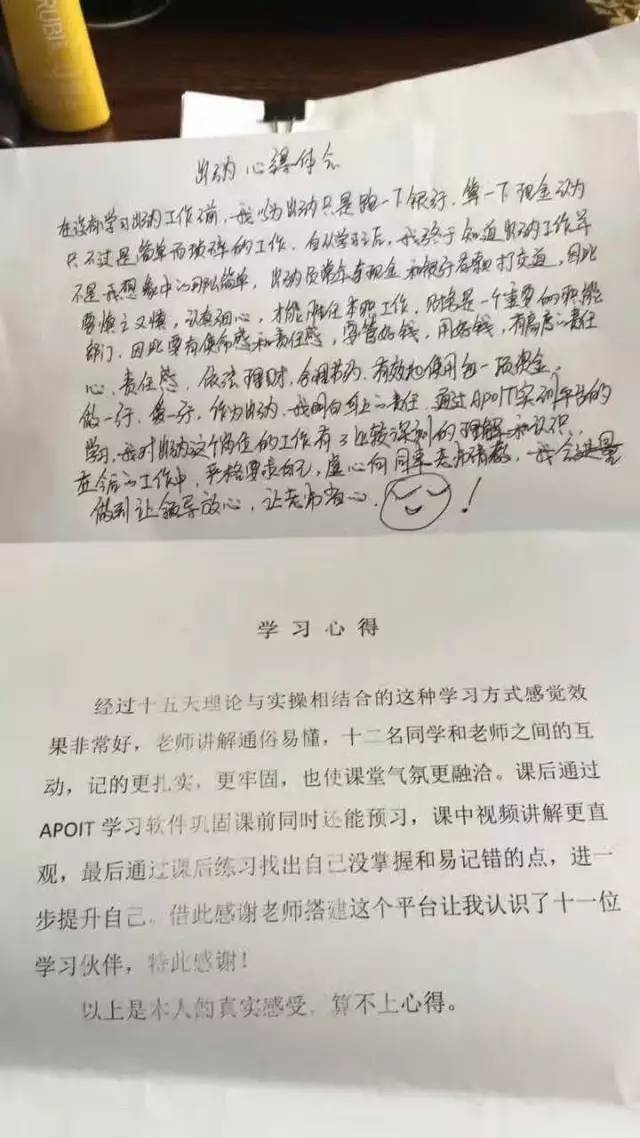 RUBIE
出纳心得体会
在没有学习出纳工作之前，我以为出纳只是跑一下银行，算一下现金以为
只不过是简单而琐碎的工作，自从学习后，我终于知道出纳工作并
不是我想象中的那么简单，出纳员常年与现金和银行存款打交道，因此
要慎之又慎，认真细心，才能胜任本职工作，财务是一个重要的职能
部门，因此要有使命感和责任感，要管好钱，用好钱，有高度的责任
心、责任感，依法理财，合理节约，有效地使用每一项资金，
做一行，爱一行，作为出纳，我明白身上的责任，通过APOIT实训平台的
学习，我对出纳这个岗位的工作有了比较深刻的理解和认识，
在今后的工作中，严格要求自己，虚心向同事老师请教，我会
做到让领导放心，让老师省心！
学习心得
经过十五天理论与实操相结合的这种学习方式感觉效
果非常好，老师讲解通俗易懂，十二名同学和老师之间的互
动，记的更扎实，更牢固，也使课堂气氛更融洽。课后通过
APOIT 学习软件巩固课前同时还能预习，课中视频讲解更直
观，最后通过课后练习找出自己没掌握和易记错的点，进一
步提升自己。借此感谢老师搭建这个平台让我认识了十一位
学习伙伴，特此感谢！
以上是本人的真实感受，算不上心得。